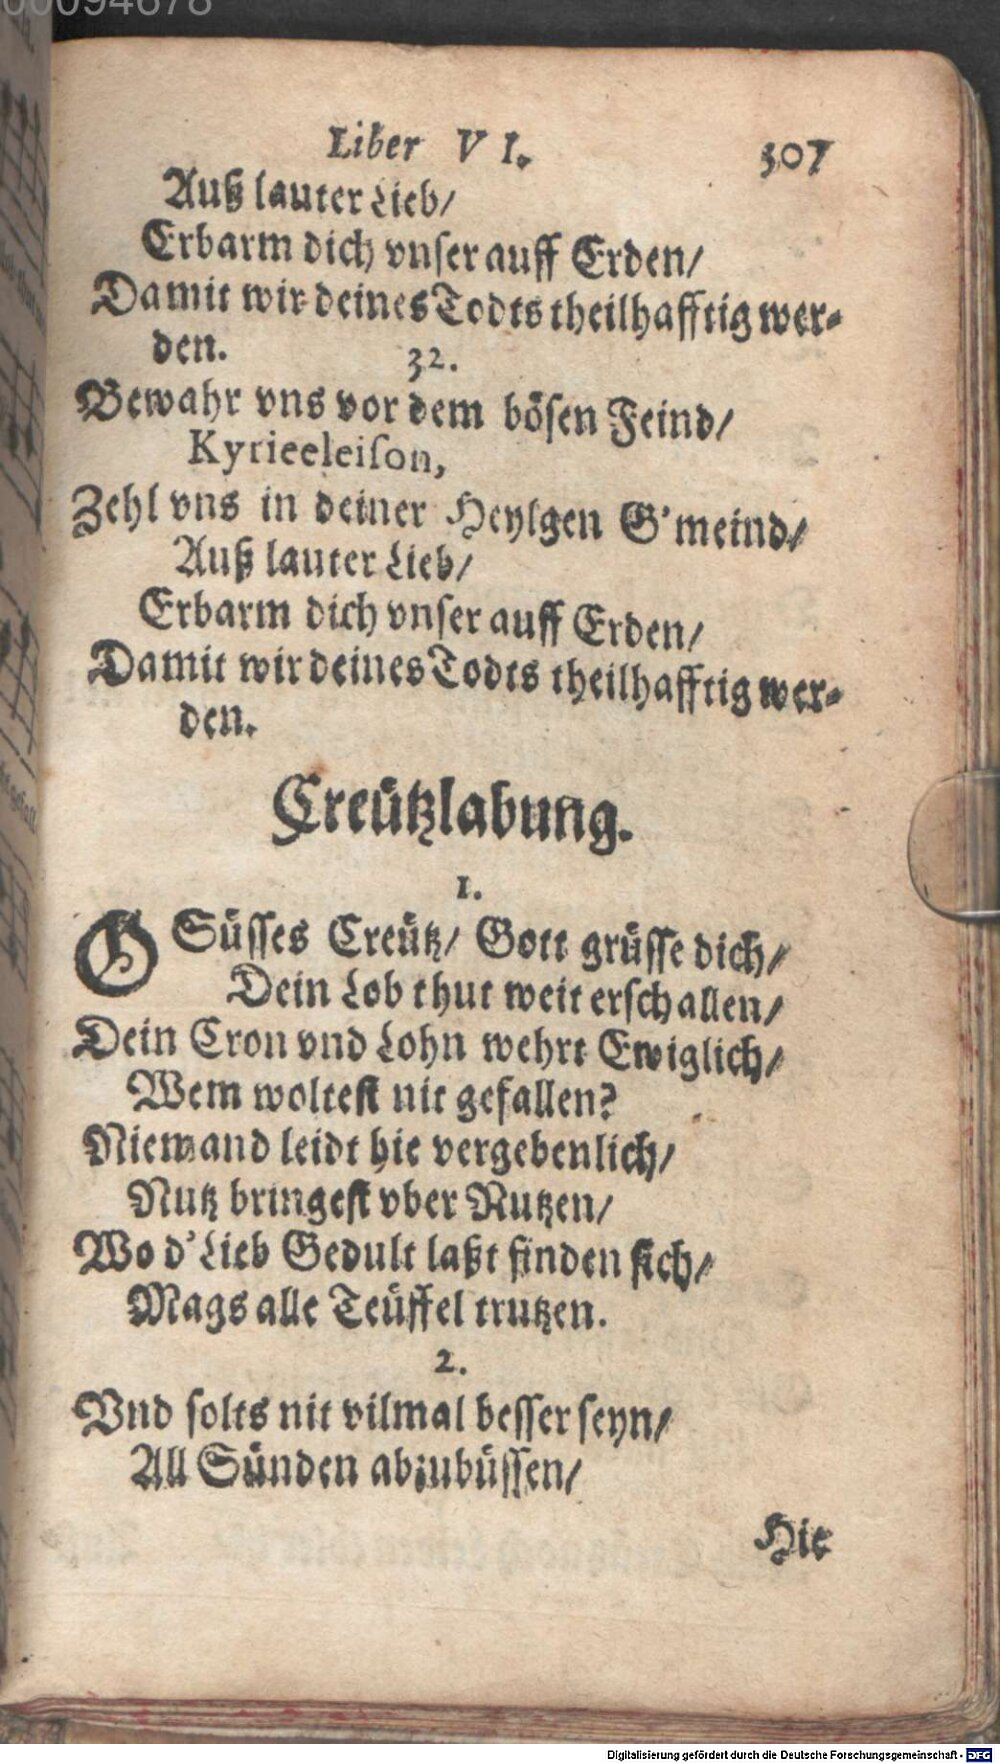 00094678
Liber VI. 307
Auß lauter Lieb/
Erbarm dich vnser auff Erden/
Damit wir deines Todts theilhafftig wer-
den. 32.
Bewahr vns vor dem bösen Feind/
Kyrieeleison,
Zehl vns in deiner Heylgen G'meind/
Auß lauter Lieb/
Erbarm dich vnser auff Erden/
Damit wir deines Todts theilhafftig wer-
den.
Creützlabung.
1.
O Süsses Creütz/ Gott grüsse dich/
Dein Lob thut weit erschallen/
Dein Cron vnd Lohn wehrt Ewiglich/
Wem woltest nit gefallen?
Niemand leidt hie vergebenlich/
Nutz bringest vber Nutzen/
Wo d'Lieb Gedult laßt finden sich/
Mags alle Teüffel trutzen.
2.
Vnd solts nit vilmal besser seyn/
All Sünden abzubüssen/
Hie
Digitalisierung gefördert durch die Deutsche Forschungsgemeinschaft - DFG